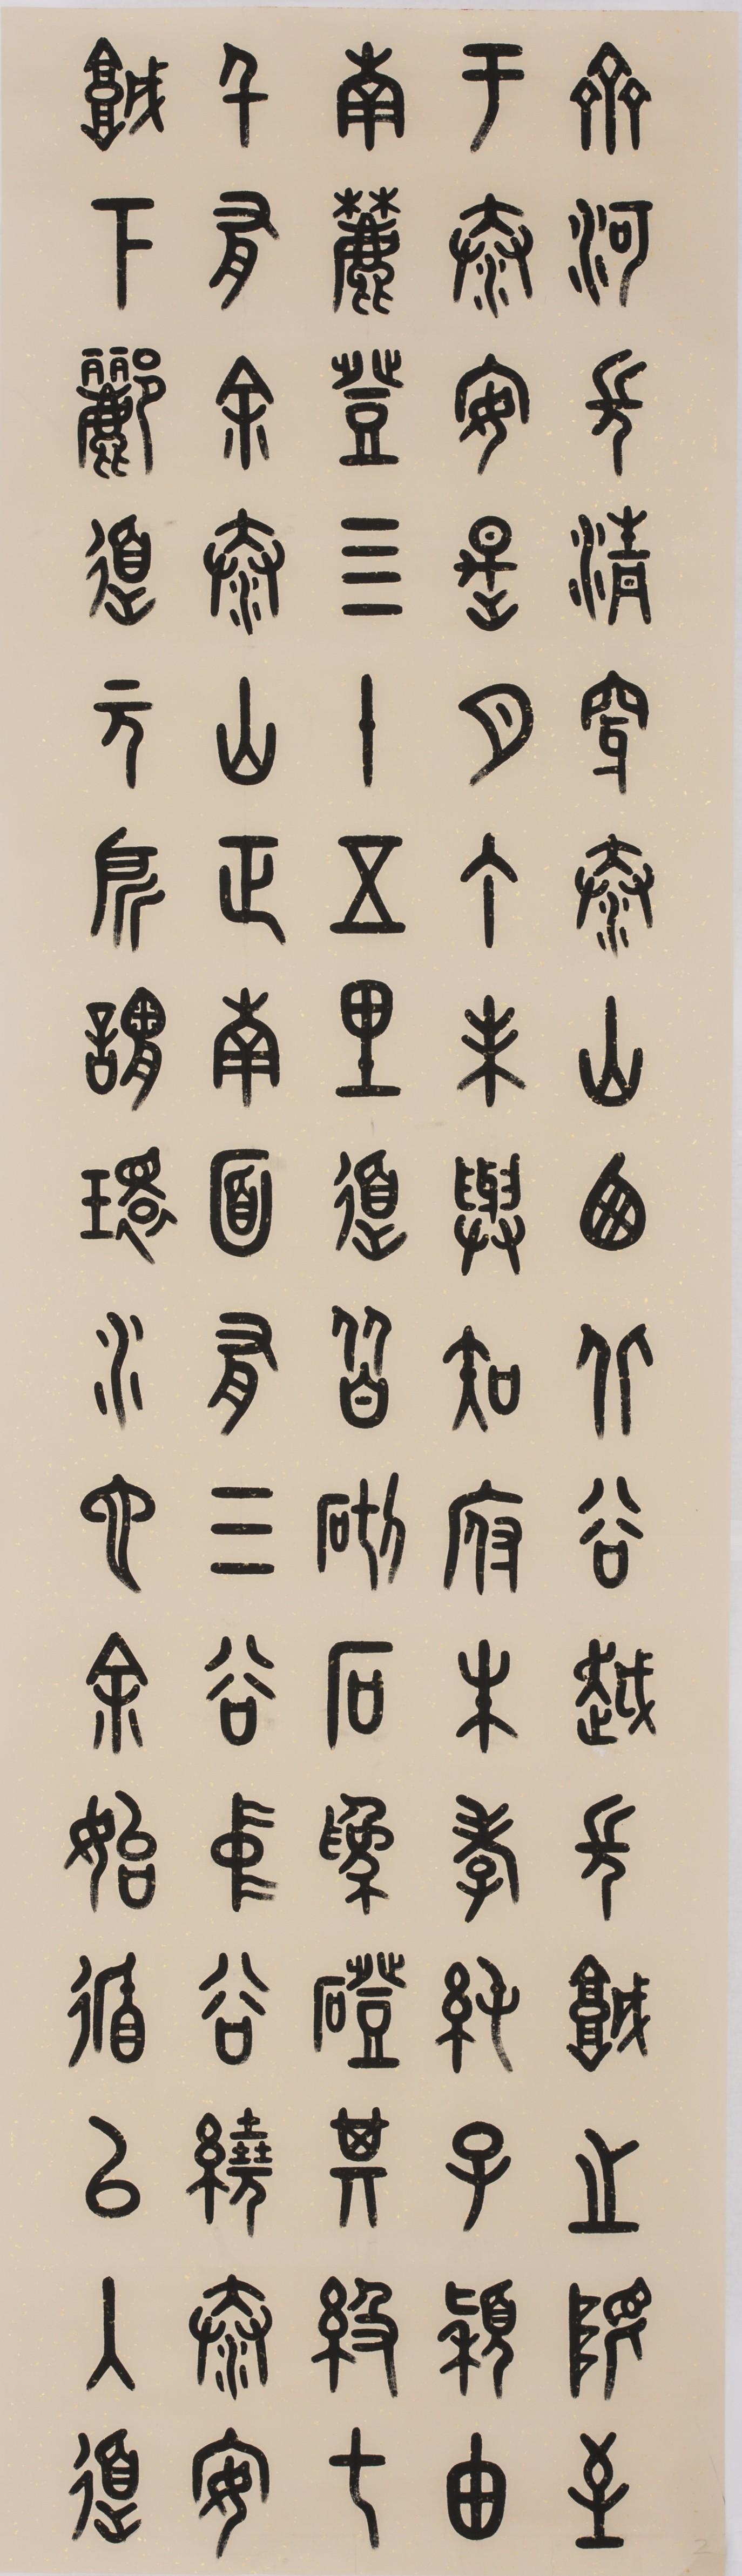 齊河長清穿泰山西北谷越長城之限至
于泰安是月丁未與知府朱孝純子穎由
南麓登四十五里道皆砌石為磴其級七
千有余泰山正南面有三谷中谷繞泰安
城下酈道元所謂環水也余始循以入道